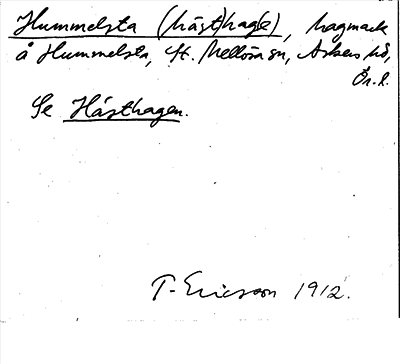 Hummelsta (häst)hag(e), hagmark
å Hummelsta, St. Mellösa sn, Askers hd,
Ör. l.
Se Hästhagen.
T. Ericsson 1912.